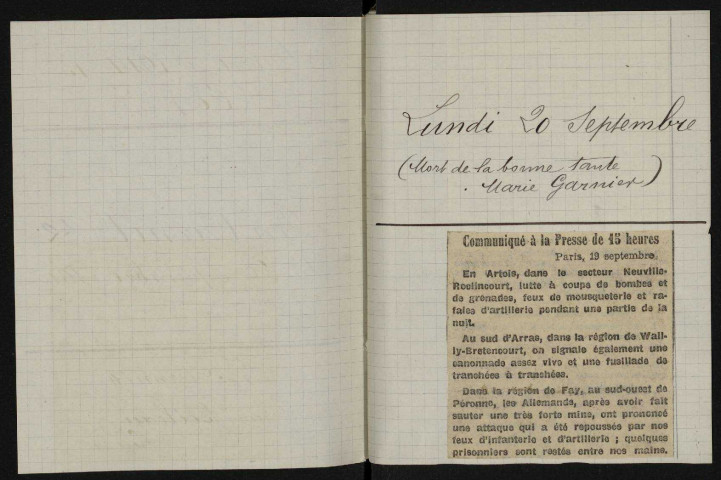 Lundi 20 Septembre
(Mort de la bonne tante
Marie Garnier)
Communiqué à la Presse de 15 heures
Paris, 19 septembre.
En Artois, dans le secteur Neuville-
Roclincourt, lutte à coups de bombes et
de grenades, feux de mousqueterie et ra-
fales d'artillerie pendant une partie de la
nuit.
Au sud d'Arras, dans la région de Wail-
ly-Bretencourt, on signale également une
canonnade assez vive et une fusillade de
tranchées à tranchées.
Dans la région de Fay, au sud-ouest de
Péronne, les Allemands, après avoir fait
sauter une très forte mine, ont prononcé
une attaque qui a été repoussée par nos
feux d'infanterie et d'artillerie ; quelques
prisonniers sont restés entre nos mains.